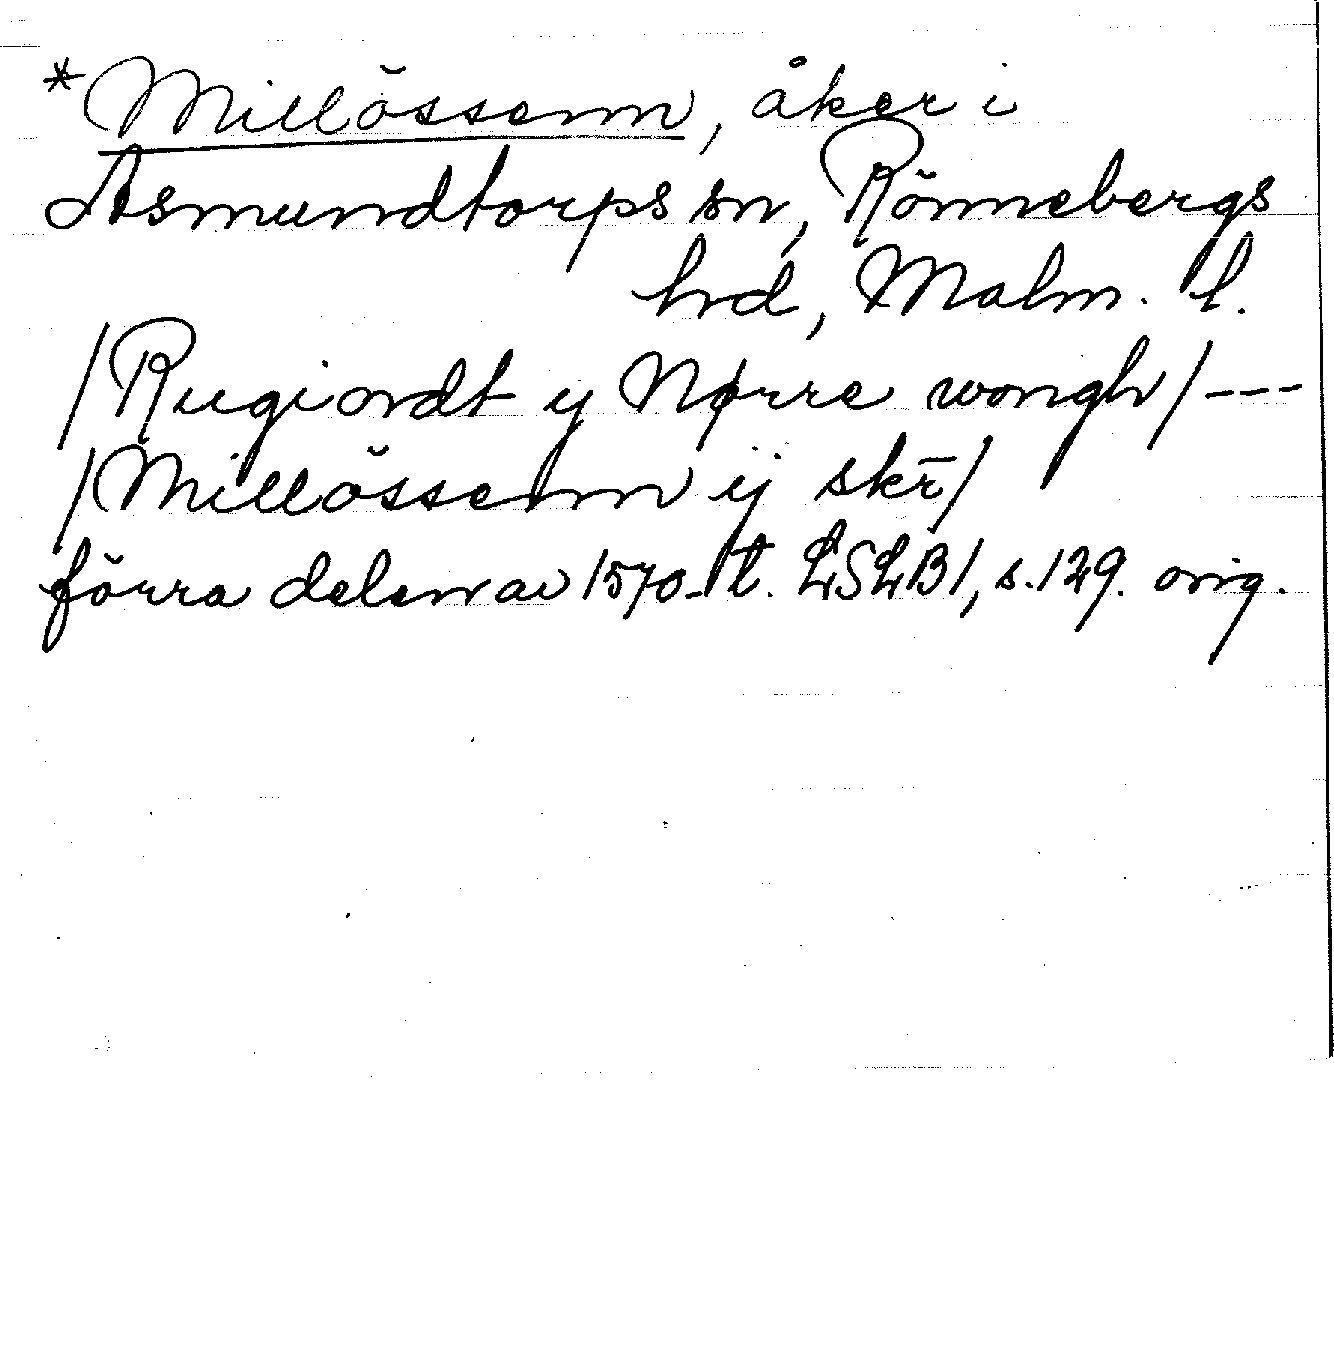 *Millössenn, åker i
Asmundtorps sn, Rönnebergs
hrd, Malm. l.
/Rugiordt y Nørre wongh/---
/Millössenn ij skr̄/
förra delen av 1570-t. LSLB1, s.129. orig.